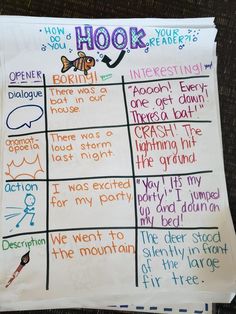 HOW DO YOU HOOK YOUR READER?!
OPENER
BORING!
INTERESTING!
Dialogue
There was a
bat in our
house.
"Aaooh! Every-
one get down!
There's a bat!"
onomat-
opoeia
There was a
loud storm
last night.
CRASH! The
lightning hit
the ground.
action
I was excited
for my party.
"Yay! It's my
party! I jumped
up and down on
my bed!
Description
We went to
the mountain
The deer stood
silently in front
of the large
fir tree.